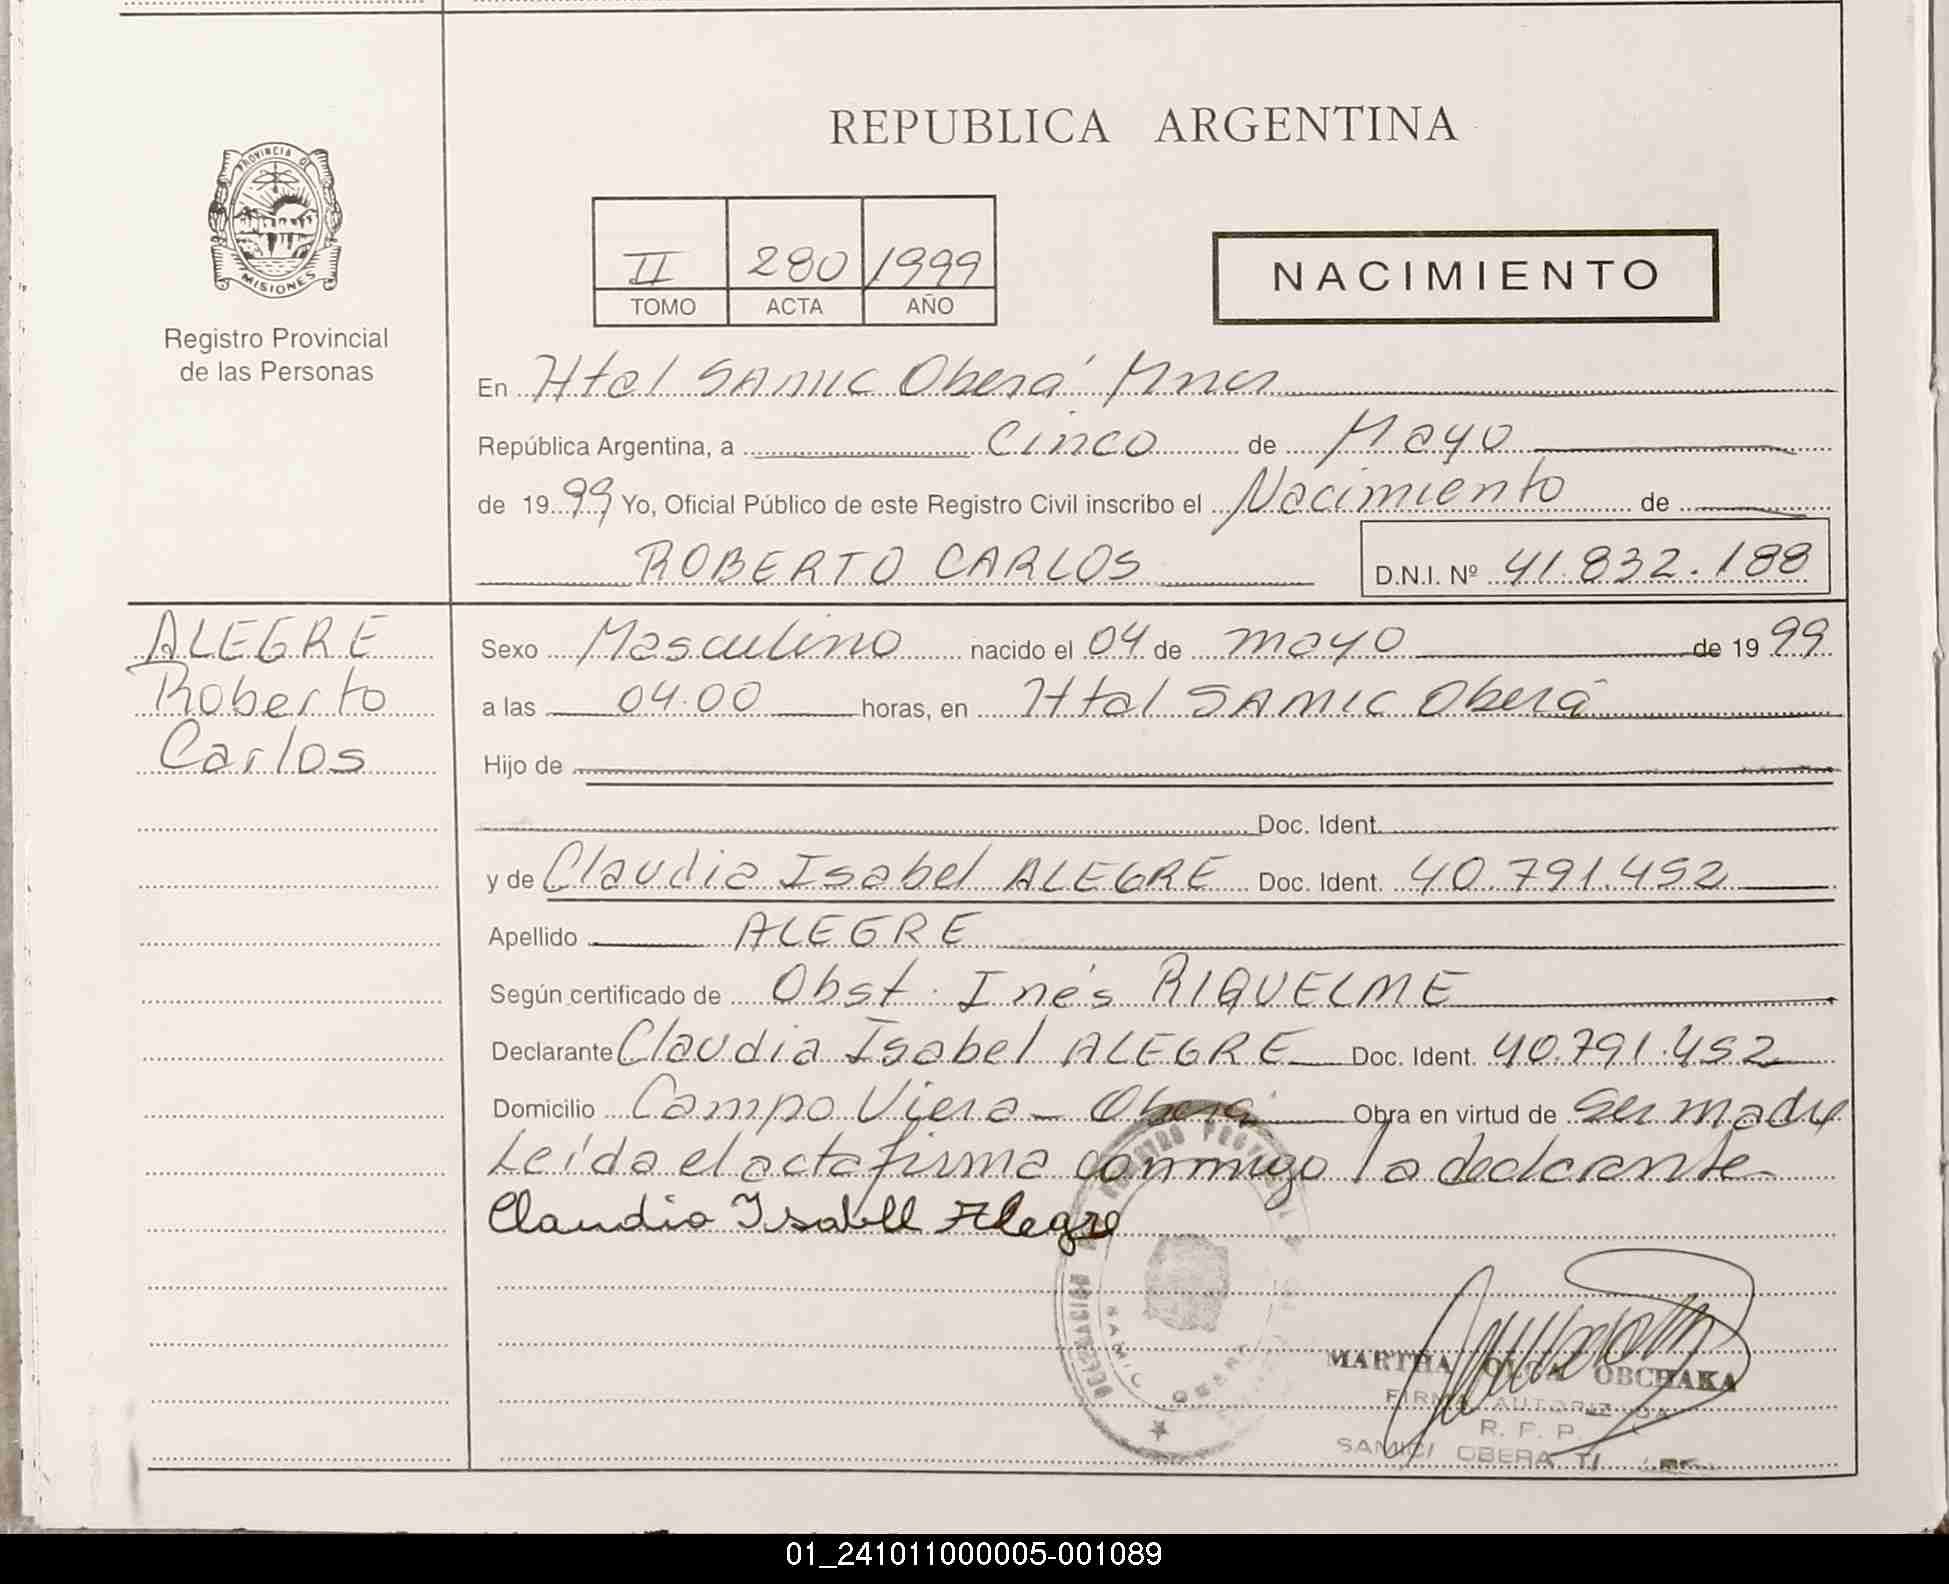 REPUBLICA ARGENTINA
PROVINCIA DE
MISIONES
Registro Provincial
de las Personas
II 280 1999
TOMO ACTA AÑO
NACIMIENTO
En Htal SAMIC Oberá Mnes
República Argentina, a Cinco de Mayo
de 1999 Yo, Oficial Público de este Registro Civil inscribo el Nacimiento de
ROBERTO CARLOS D.N.I. Nº 41.832.188
ALEGRE
Roberto
Carlos
Sexo Masculino nacido el 04 de mayo de 1999
a las 04.00 horas, en Htal SAMIC Oberá
Hijo de
Doc. Ident.
y de Claudia Isabel ALEGRE Doc. Ident. 40.791.452
Apellido ALEGRE
Según certificado de Obst. Inés RIQUELME
Declarante Claudia Isabel ALEGRE Doc. Ident. 40.791.452
Domicilio Campo Viera - Oberá Obra en virtud de ser madre
Leída el acta firma conmigo la declarante
Claudia Isabell Alegre
SAMIC OBERA
MARTHA OLGA OBCHAKA
FIRMA AUTORIZADA
R. P. P.
SAMIC OBERA
01_241011000005-001089